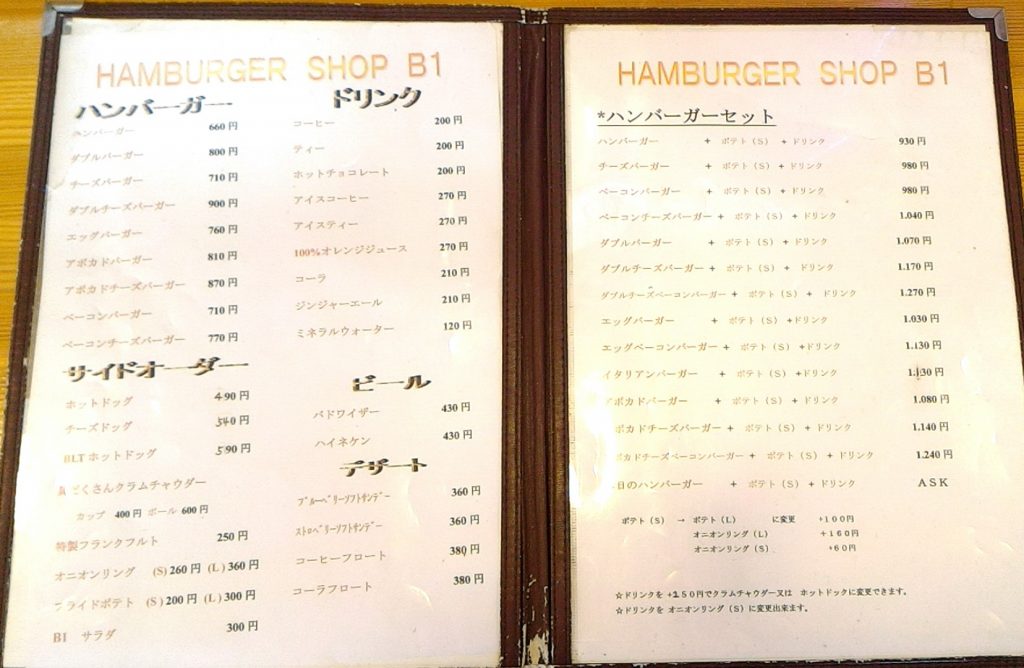 HAMBURGER SHOP B1
ハンバーガー
ハンバーガー 660円
ダブルバーガー 800円
チーズバーガー 710円
ダブルチーズバーガー 900円
エッグバーガー 760円
アボカドバーガー 810円
アボカドチーズバーガー 870円
ベーコンバーガー 710円
ベーコンチーズバーガー 770円
サイドオーダー
ホットドッグ 490円
チーズドッグ 540円
BLTホットドッグ 590円
具だくさんクラムチャウダー
カップ 400円 ボール 600円
特製フランクフルト 250円
オニオンリング (S) 260円 (L) 360円
フライドポテト (S) 200円 (L) 300円
B1 サラダ 300円
ドリンク
コーヒー 200円
ティー 200円
ホットチョコレート 200円
アイスコーヒー 270円
アイスティー 270円
100%オレンジジュース 270円
コーラ 210円
ジンジャーエール 210円
ミネラルウォーター 120円
ビール
バドワイザー 430円
ハイネケン 430円
デザート
ブルーベリーソフトサンデー 360円
ストロベリーソフトサンデー 360円
コーヒーフロート 380円
コーラフロート 380円
HAMBURGER SHOP B1
*ハンバーガーセット
ハンバーガー + ポテト(S) + ドリンク 930円
チーズバーガー + ポテト(S) + ドリンク 980円
ベーコンバーガー + ポテト(S) + ドリンク 980円
ベーコンチーズバーガー + ポテト(S) + ドリンク 1.040円
ダブルバーガー + ポテト(S) + ドリンク 1.070円
ダブルチーズバーガー + ポテト(S) + ドリンク 1.170円
ダブルチーズベーコンバーガー + ポテト(S) + ドリンク 1.270円
エッグバーガー + ポテト(S) +ドリンク 1.030円
エッグベーコンバーガー + ポテト(S) +ドリンク 1.130円
イタリアンバーガー + ポテト(S) +ドリンク 1.130円
アボカドバーガー + ポテト(S) + ドリンク 1.080円
ボカドチーズバーガー + ポテト(S) + ドリンク 1.140円
ボカドチーズベーコンバーガー + ポテト(S) + ドリンク 1.240円
日のハンバーガー + ポテト(S) + ドリンク ASK
ポテト(S) → ポテト(L) に変更 +100円
オニオンリング(L) +160円
オニオンリング(S) +60円
☆ドリンクを +250円でクラムチャウダー又は ホットドックに変更できます。
☆ドリンクを オニオンリング(S)に変更出来ます。